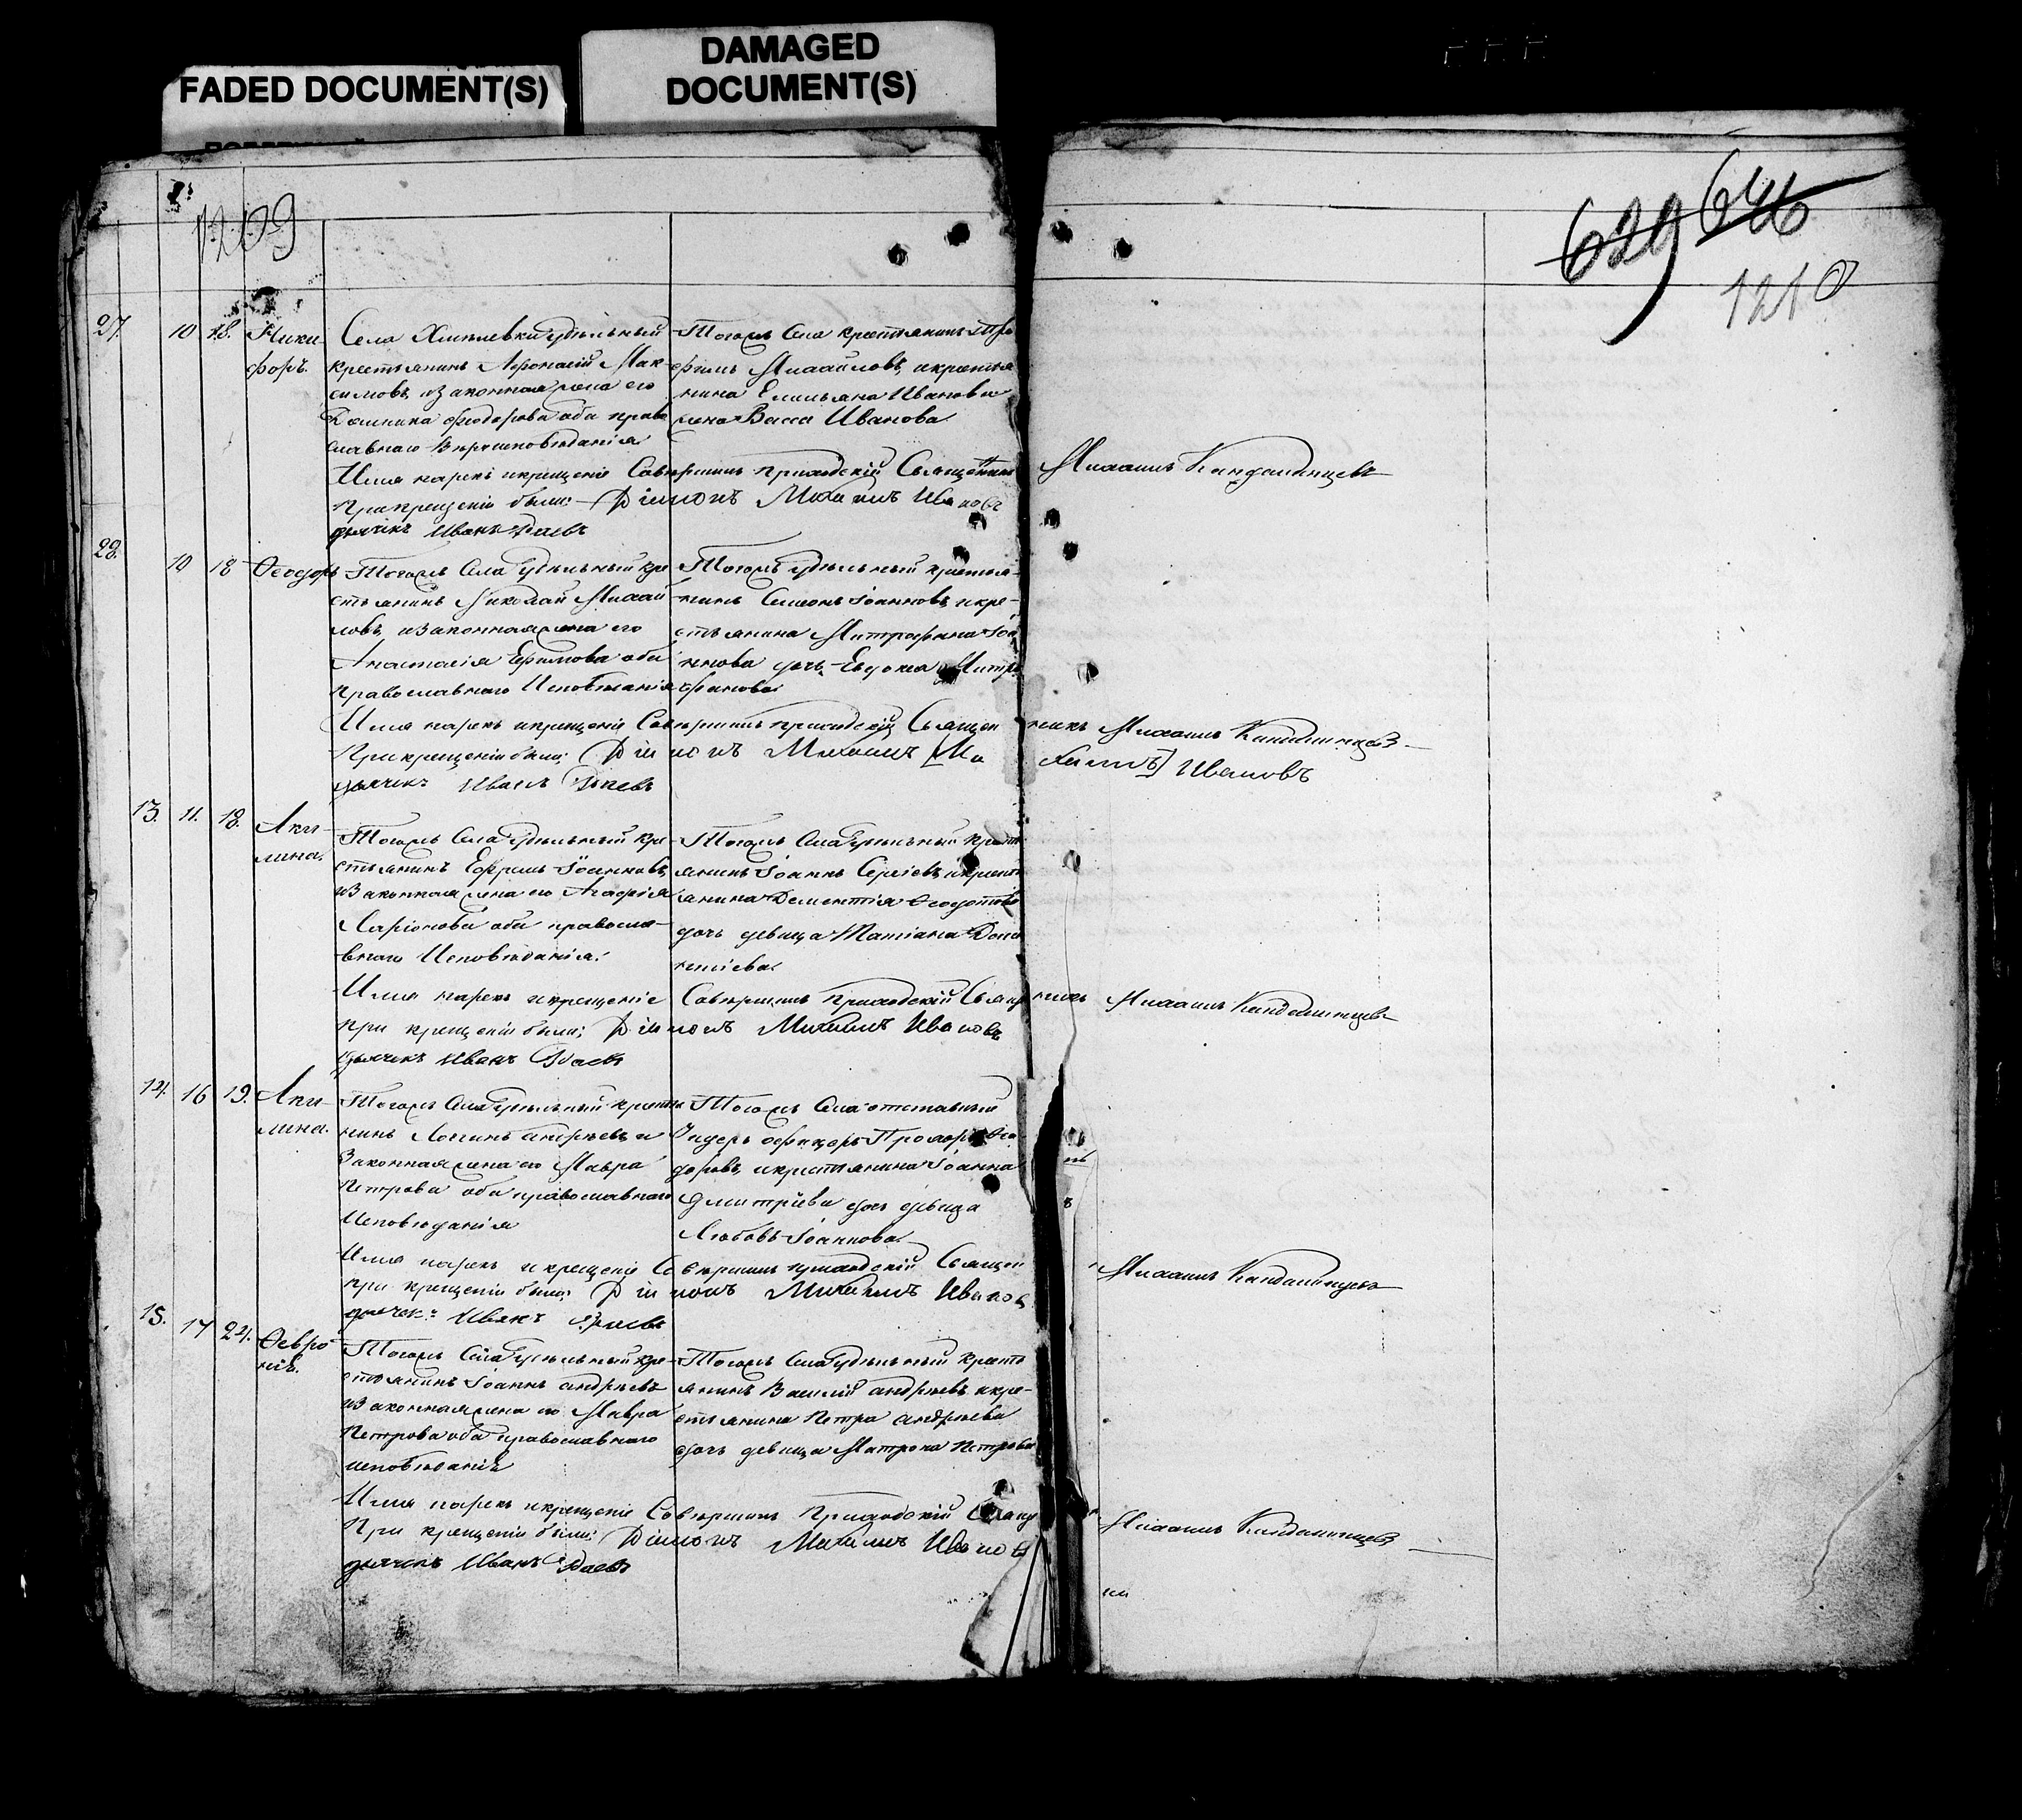 FADED DOCUMENT(S)
DAMAGED
DOCUMENT(S)
1209
629 646
1210
27. 10 18. Ники-
форъ.
Села Хмелевки удѣльный
крестьянинъ Афонасій Мак-
симовъ, и законная жена его
Домника Феодорова оба право
славнаго Вѣроисповѣданія
Тогожъ Села крестьянинъ Тро
фимъ Михайловъ, и крестья
нина Емельяна Иванова
жена Васса Иванова.
Имя нарекъ и крещеніе Совершилъ приходскій Священникъ Михаилъ Кандалинцевъ
При крещеніи были: Діаконъ Михаилъ Ивановъ
дьячекъ Иванъ
28. 10 18 Ѳеодоръ
Тогожъ Села Удѣльный кре
стьянинъ Николай Михай
ловъ, и законная жена его
Анастасія Ефимова оба
православнаго Исповѣданія
Тогожъ удѣльный крестья-
нинъ Симеонъ Іоанновъ, и кре-
стьянина Митрофана Іоа
ннова дочь Евдокія Митро
фанова.
Имя нарекъ и крещеніе Совершилъ приходскій Священ никъ Михаилъ Кандалинцевъ
При крещеніи были: Діаконъ Михаилъ [Ми хаилъ] Ивановъ
дьячекъ Иванъ
13. 11. 18. Аки-
лина.
Тогожъ Села Удѣльный кре
стьянинъ Ефремъ Іоанновъ,
и законная жена его Агафія
Ларіонова оба правосла-
внаго Исповѣданія.
Тогожъ Села Удѣльный крест
янинъ Іоаннъ Сергіевъ, и крест
янина Дементія Ѳеодотова
дочь девица Татіана Деме
нтіева.
Имя нарекъ и крещеніе Совершилъ Приходскій Священ никъ Михаилъ Кандалинцевъ
при крещеніи были: Діаконъ Михаилъ Ивановъ
дьячекъ Иванъ
14. 16 19. Аки-
лина.
Тогожъ Села Удѣльный крестья
нинъ Логинъ Андрѣевъ и
Законная жена его Мавра
Петрова оба православнаго
Исповѣданія
Тогожъ Села отставный
Ундеръ офицеръ Прохоръ Ѳео
доровъ, и крестьянина Іоанна
Дмитріева дочь девица
Любовь Іоаннова.
Имя нарекъ и крещеніе Совершилъ приходскій Священ Михаилъ Кандалинцевъ
при крещеніи были: Діаконъ Михаилъ Ивановъ
дьячекъ Иванъ
15. 17 24. Ѳевро
нія.
Тогожъ Села Удѣльный кре-
стьянинъ Іоаннъ Андрѣевъ
и законная жена его Мавра
Петрова оба православнаго
исповѣданія
Тогожъ Села удѣльный крест
янинъ Василій Андрѣевъ, и кре-
стьянина Петра Андрѣева
дочь девица Матрона Петрова
Имя нарекъ и крещеніе Совершилъ Приходскій Священ Михаилъ Кандалинцевъ
При крещеніи были: Діаконъ Михаилъ Ивановъ
дьячекъ Иванъ